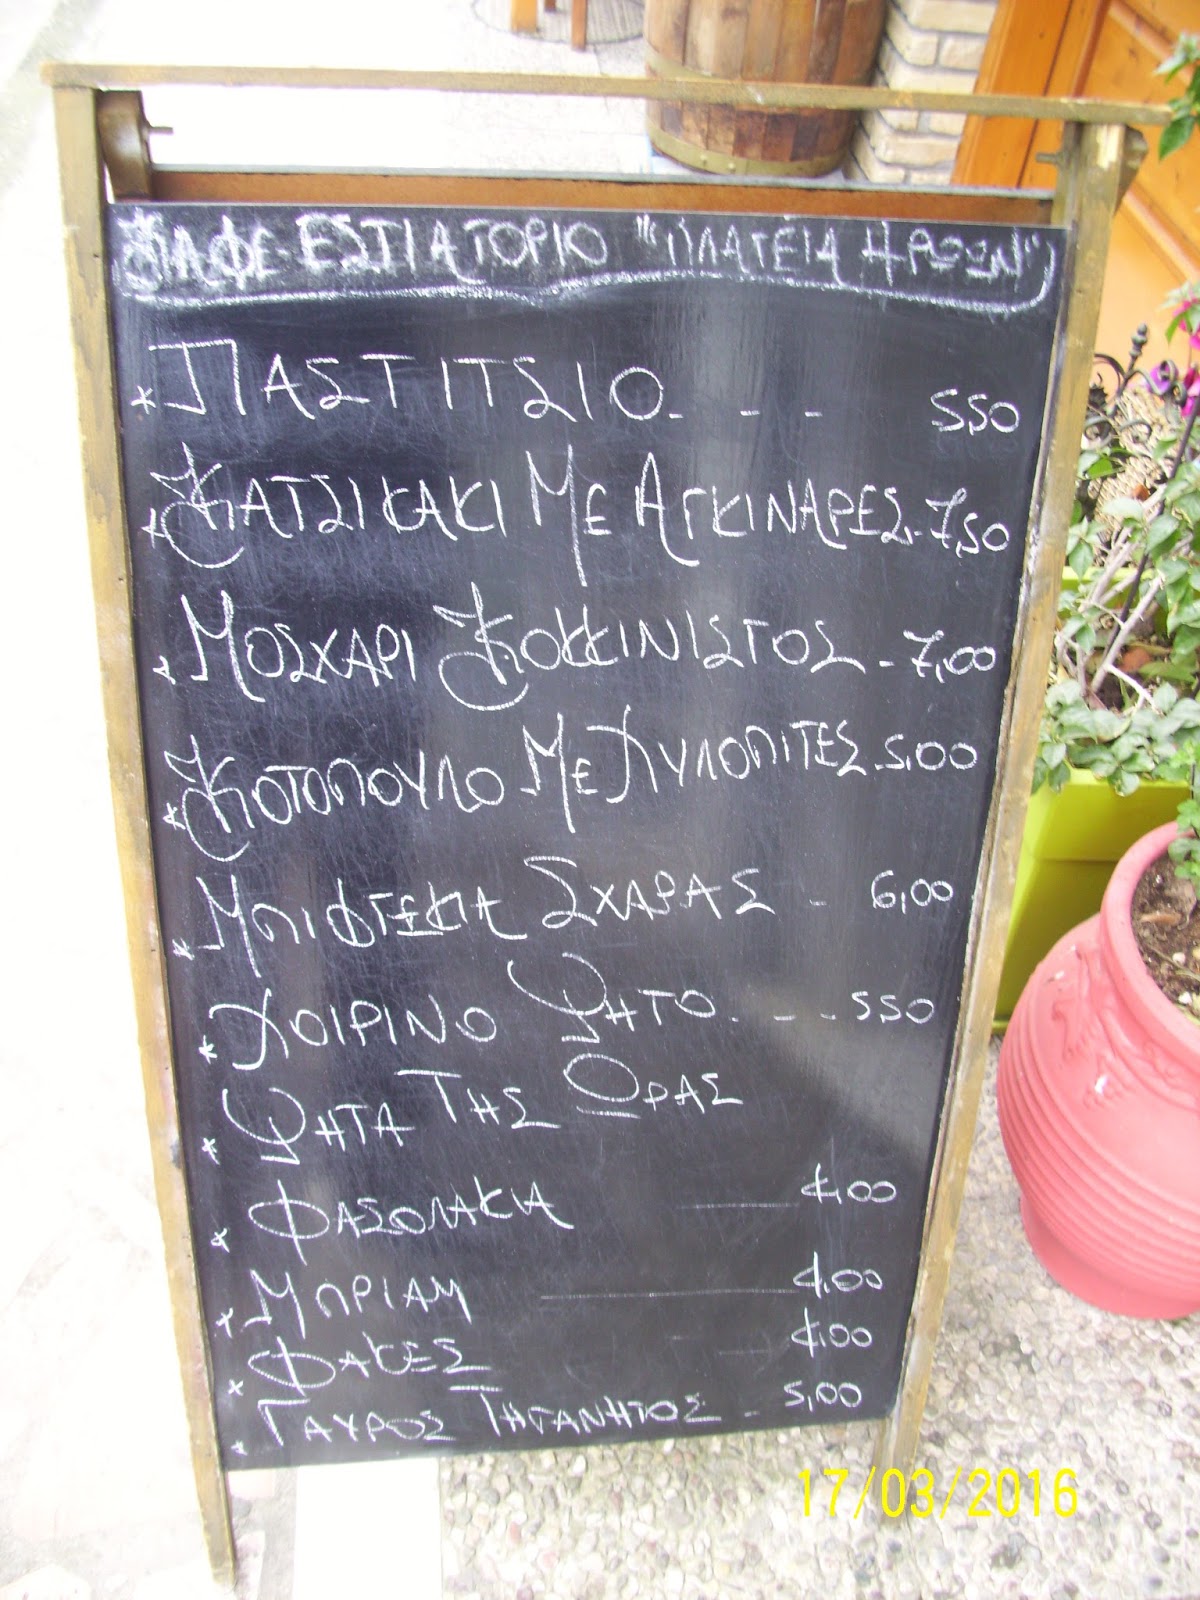 ΚΑΦΕ-ΕΣΤΙΑΤΟΡΙΟ "ΠΛΑΤΕΙΑ ΗΡΩΩΝ"
* ΠΑΣΤΙΤΣΙΟ - - - 5,50
* ΚΑΤΣΙΚΑΚΙ ΜΕ ΑΓΚΙΝΑΡΕΣ - 7,50
* ΜΟΣΧΑΡΙ ΚΟΚΚΙΝΙΣΤΟΣ - 7,00
* ΚΟΤΟΠΟΥΛΟ ΜΕ ΧΥΛΟΠΙΤΕΣ - 5,00
* ΜΠΙΦΤΕΚΙΑ ΣΧΑΡΑΣ - 6,00
* ΧΟΙΡΙΝΟ ΨΗΤΟ - - - 5,50
* ΨΗΤΑ ΤΗΣ ΩΡΑΣ
* ΦΑΣΟΛΑΚΙΑ 4,00
* ΜΠΡΙΑΜ 4,00
* ΦΑΚΕΣ 4,00
* ΓΑΥΡΟΣ ΤΗΓΑΝΗΤΟΣ - 5,00
17/03/2016